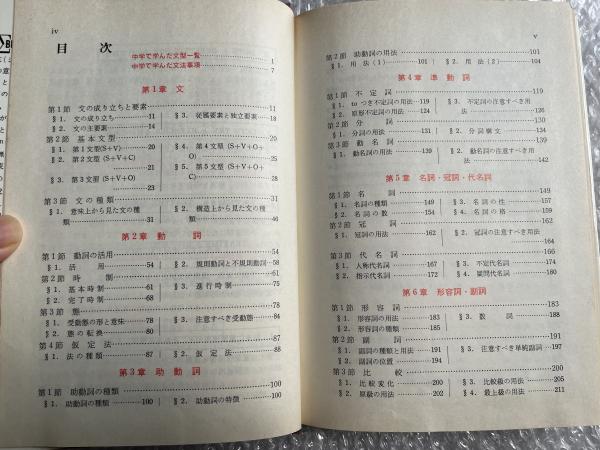 iv
目 次
中学で学んだ文型一覧……1
中学で学んだ文法事項……7
第1章 文
第1節 文の成り立ちと要素……11
§1. 文の成り立ち……11
§2. 文の主要素……14
§3. 従属要素と独立要素……18
第2節 基本文型……20
§1. 第1文型(S+V)……20
§2. 第2文型(S+V+C)……21
§3. 第3文型(S+V+O)……23
§4. 第4文型(S+V+O+O)……25
§5. 第5文型(S+V+O+C)……28
第3節 文の種類……31
§1. 意味上から見た文の種類……31
§2. 構造上から見た文の種類……46
第2章 動詞
第1節 動詞の活用……54
§1. 活用……54
§2. 規則動詞と不規則動詞……58
第2節 時制……61
§1. 基本時制……61
§2. 完了時制……68
§3. 進行時制……75
第3節 態……78
§1. 受動態の形と意味……78
§2. 態の転換……80
§3. 注意すべき受動態……84
第4節 仮定法……87
§1. 法の種類……87
§2. 仮定法……88
第3章 助動詞
第1節 助動詞の種類……100
§1. 助動詞の種類……100
§2. 助動詞の特徴……100
v
第2節 助動詞の用法……101
§1. 用法(1)……101
§2. 用法(2)……104
第4章 準動詞
第1節 不定詞……119
§1. toつき不定詞の用法……119
§2. 原形不定詞の用法……124
§3. 不定詞の注意すべき用法……126
第2節 分詞……131
§1. 分詞の用法……131
§2. 分詞構文……134
第3節 動名詞……139
§1. 動名詞の用法……139
§2. 動名詞の注意すべき用法……142
第5章 名詞・冠詞・代名詞
第1節 名詞……149
§1. 名詞の種類……149
§2. 名詞の数……154
§3. 名詞の性……157
§4. 名詞の格……159
第2節 冠詞……162
§1. 冠詞の用法……162
§2. 冠詞の注意すべき用法……164
第3節 代名詞……166
§1. 人称代名詞……167
§2. 指示代名詞……172
§3. 不定代名詞……174
§4. 疑問代名詞……180
第6章 形容詞・副詞
第1節 形容詞……183
§1. 形容詞の用法……183
§2. 形容詞の種類……185
§3. 数詞……188
第2節 副詞……191
§1. 副詞の種類と用法……191
§2. 副詞の位置……194
§3. 注意すべき単純副詞……197
第3節 比較……200
§1. 比較変化……200
§2. 原級の用法……202
§3. 比較級の用法……205
§4. 最上級の用法……211